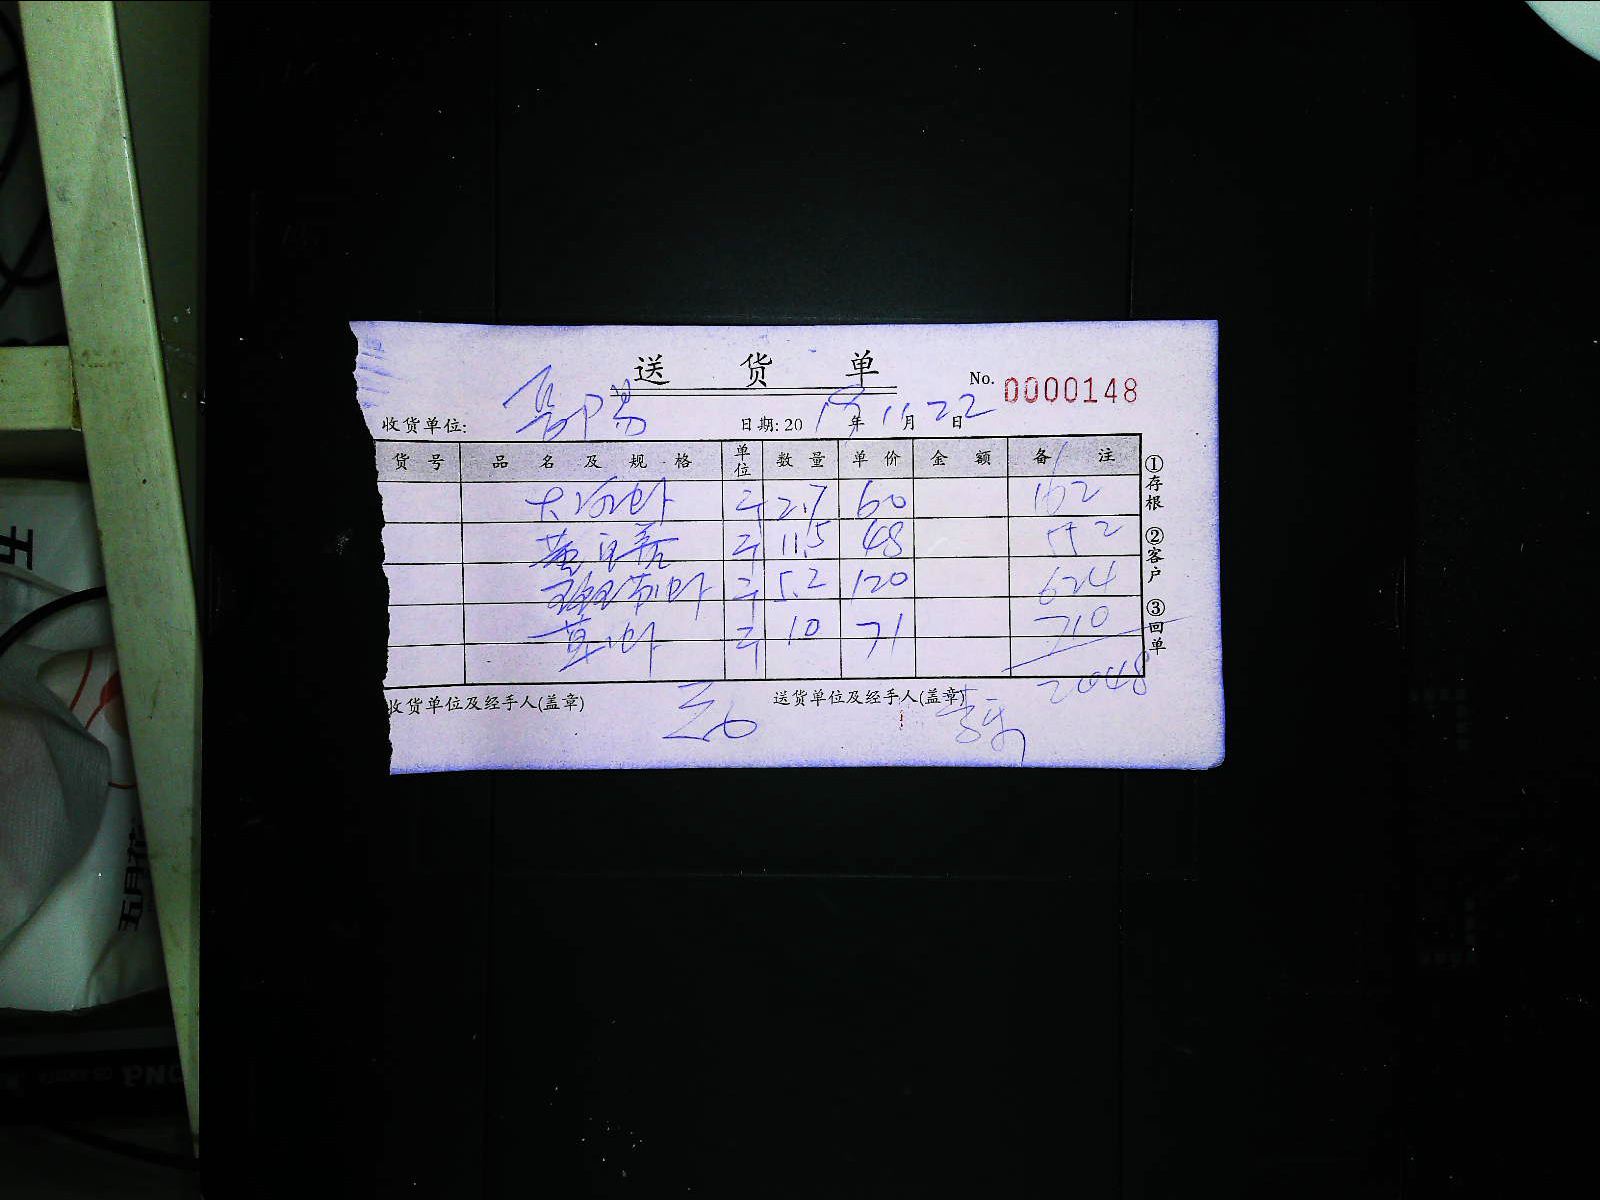 送 货 单
No. 0000148
收货单位: 日期: 20 年 11 月 22 日
货 号 品 名 及 规 格 单位 数 量 单 价 金 额 备 注
大河虾 斤 2.7 60 162
斤 11.5 48 552
斤 5.2 120 624
斤 10 71 710
2048
收货单位及经手人(盖章) 送货单位及经手人(盖章)
①存根 ②客户 ③回单
五
五月花